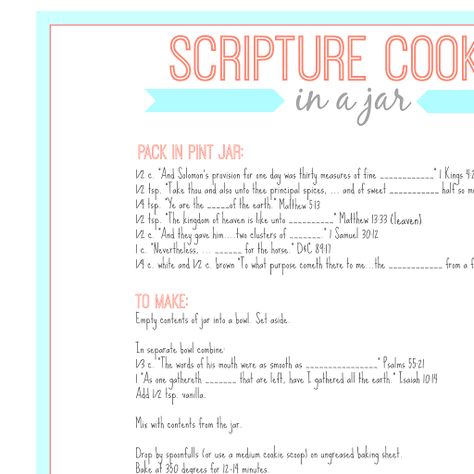 SCRIPTURE COOK
in a jar
PACK IN PINT JAR:
1/2 c. "And Solomon's provision for one day was thirty measures of fine ____________" 1 Kings 4:2
1/2 tsp. "Take thou and also unto thee principal spices, ... and of sweet ___________ half so m
1/4 tsp. "Ye are the _____of the earth." Matthew 5:13
1/2 tsp. "The kingdom of heaven is like unto __________" Matthew 13:33 (leaven)
1/2 c. "And they gave him....two clusters of ________." 1 Samuel 30:12
1 c. "Nevertheless, ... ______ for the horse." D&C 89:17
1/4 c. white and 1/2 c. brown "To what purpose cometh there to me...the ____________ from a f
TO MAKE:
Empty contents of jar into a bowl. Set aside.
In separate bowl combine:
1/3 c. "The words of his mouth were as smooth as ________________" Psalms 55:21
1 "As one gathereth _______ that are left, have I gathered all the earth." Isaiah 10:14
Add 1/2 tsp. vanilla.
Mix with contents from the jar.
Drop by spoonfulls (or use a medium cookie scoop) on ungreased baking sheet.
Bake at 350 degrees for 12-14 minutes.